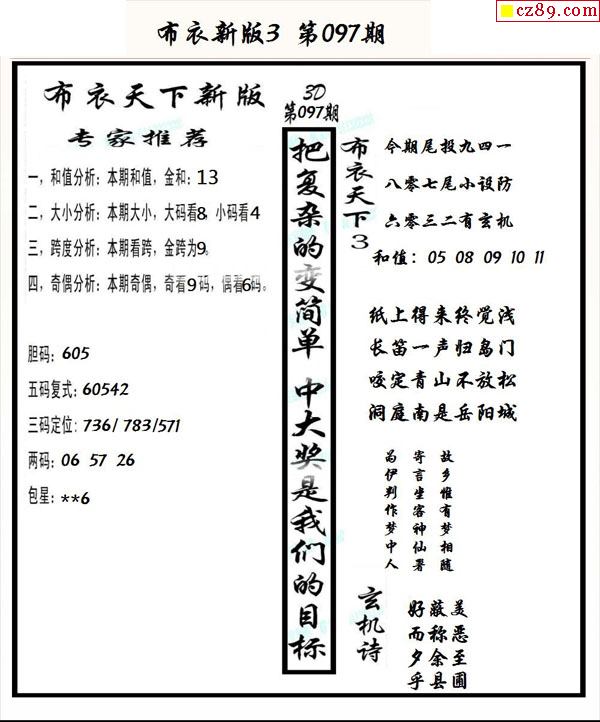 cz89.com
布衣新版3 第097期
布衣天下新版
专家推荐
一，和值分析：本期和值，金和：13
二，大小分析：本期大小，大码看8，小码看4
三，跨度分析：本期看跨，金跨为9。
四，奇偶分析：本期奇偶，奇看9码，偶看6码。
胆码：605
五码复式：60542
三码定位：736/ 783/571
两码：06 57 26
包星：**6
3D
第097期
把复杂的变简单 中大奖是我们的目标
布衣天下3
今期尾投九四一
八零七尾小设防
六零三二有玄机
和值：05 08 09 10 11
纸上得来终觉浅
长笛一声归岛门
咬定青山不放松
洞庭南是岳阳城
故乡惟有梦相随
寄言坐客神仙署
为伊判作梦中人
玄机诗
美恶至圃
蔽称余县
好而夕乎